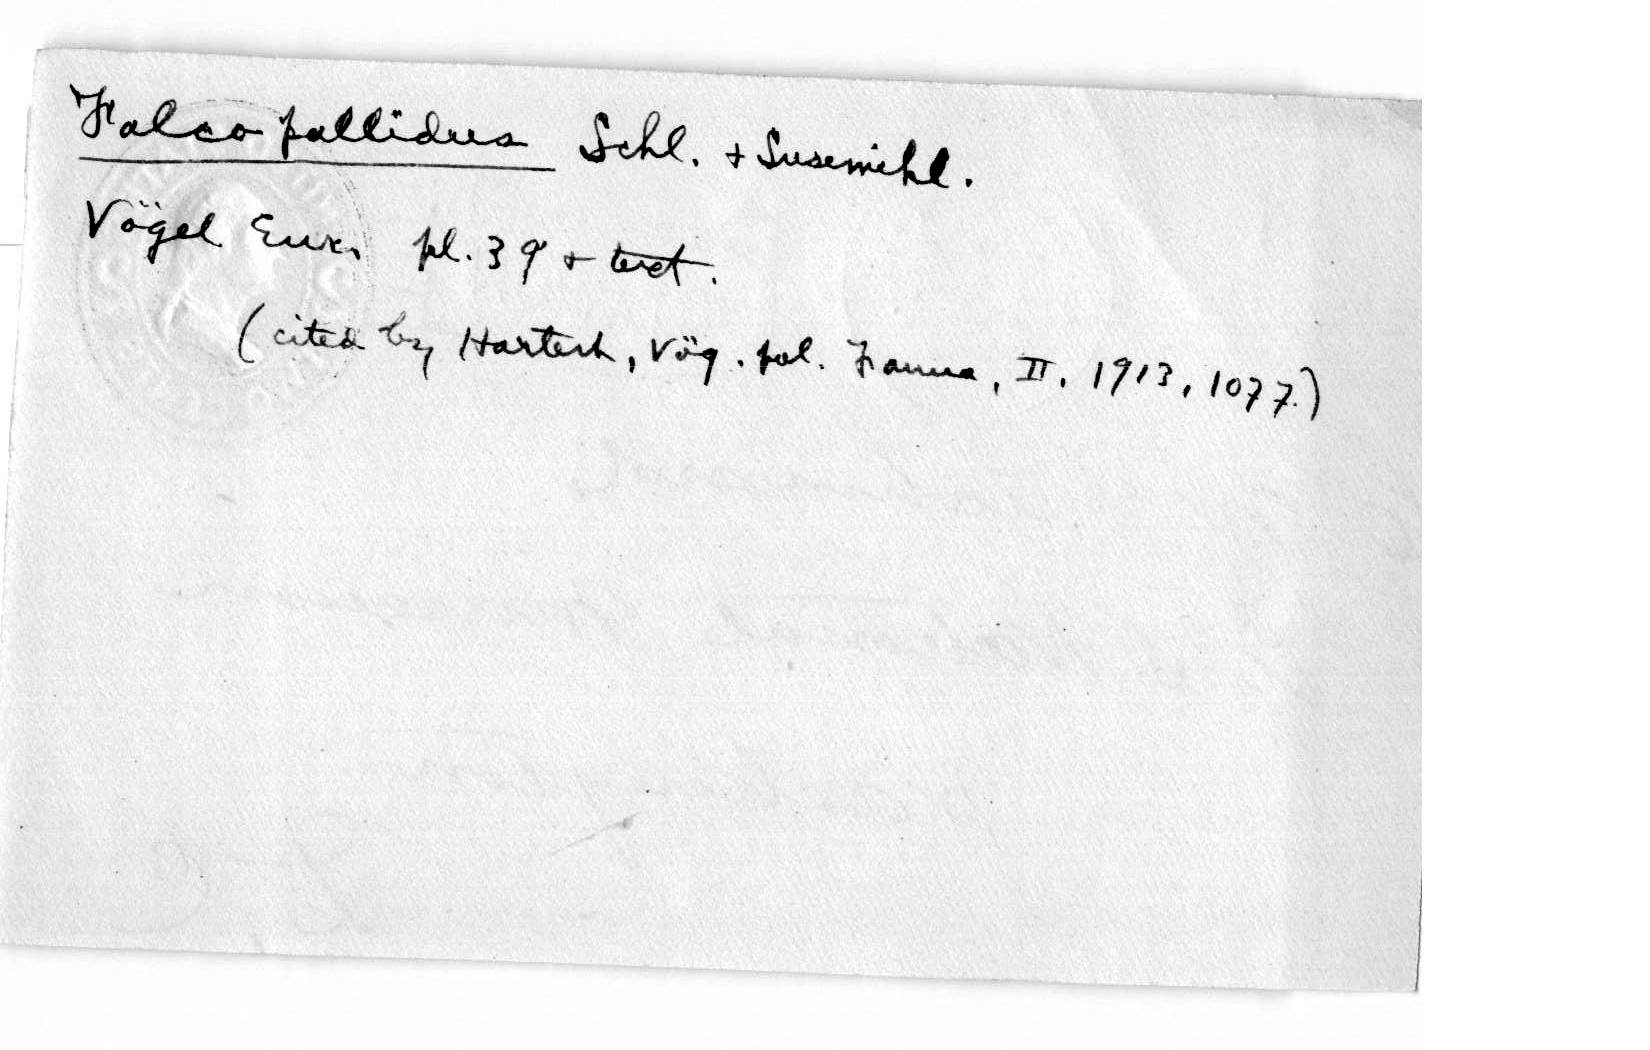 Falco pallidus Schl. + Susemihl.
Vögel Eur. pl. 39 + text.
(cited by Hartert, Vög. pal. Fauna, II, 1913, 1077.)